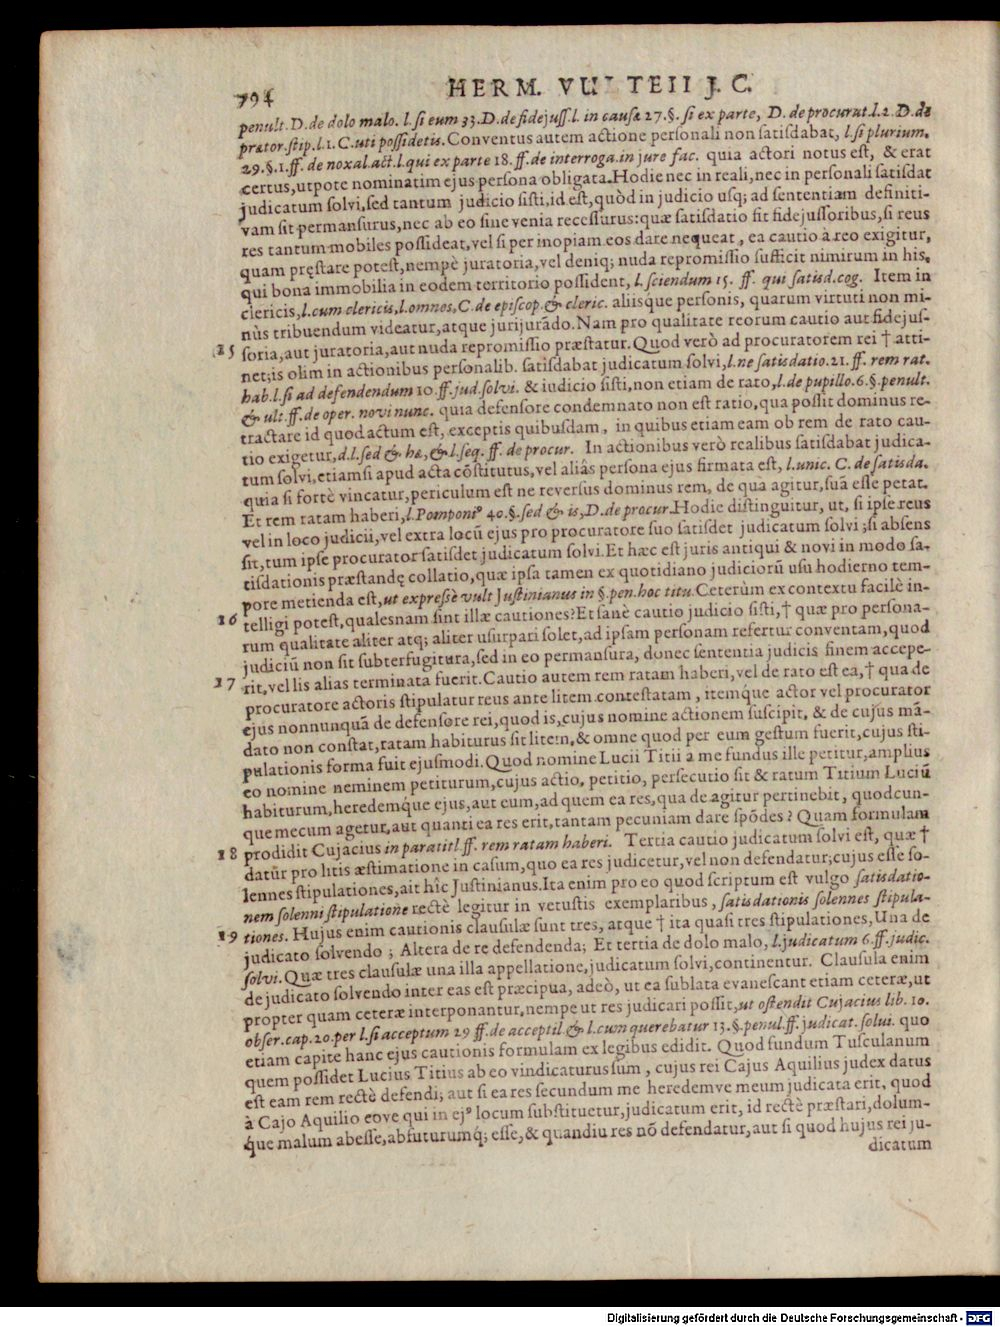 794
HERM. VULTEII J. C.
penult. D. de dolo malo. l. si eum 33. D. de fidejuss. l. in causæ 27. §. si ex parte, D. de procurat. l. 2. D. de
prætor. stip. l. 1. C. uti possidetis. Conventus autem actione personali non satisdabat, l. si plurium.
29. §. 1. ff. de noxal. act. l. qui ex parte 18. ff. de interroga. in jure fac. quia actori notus est, & erat
certus, utpote nominatim ejus persona obligata. Hodie nec in reali, nec in personali satisdat
judicatum solvi, sed tantum judicio sisti, id est, quòd in judicio usq; ad sententiam definiti-
vam sit permansurus, nec ab eo sine venia recessurus: quæ satisdatio fit fidejussoribus, si reus
res tantum mobiles possideat, vel si per inopiam eos dare nequeat, ea cautio à reo exigitur,
quam pręstare potest, nempè juratoria, vel deniq; nuda repromissio sufficit nimirum in his,
qui bona immobilia in eodem territorio possident, l. sciendum 15. ff. qui satisd. cog. Item in
clericis, l. cum clericis, l. omnes, C. de episcop. & cleric. aliisque personis, quarum virtuti non mi-
nùs tribuendum videatur, atque jurijurãdo. Nam pro qualitate reorum cautio aut fidejus-
25 soria, aut juratoria, aut nuda repromissio præstatur. Quod verò ad procuratorem rei † atti-
net; is olim in actionibus personalib. satisdabat judicatum solvi, l. ne satisdatio. 21. ff. rem rat.
hab. l. si ad defendendum 10. ff. jud. solvi. & iudicio sisti, non etiam de rato, l. de pupillo. 6. §. penult.
& ult. ff. de oper. novi nunc. quia defensore condemnato non est ratio, qua possit dominus re-
tractare id quod actum est, exceptis quibusdam, in quibus etiam eam ob rem de rato cau-
tio exigetur, d. l. sed & hæ, & l. seq. ff. de procur. In actionibus verò realibus satisdabat judica-
tum solvi, etiamsi apud acta cõstitutus, vel aliâs persona ejus firmata est, l. unic. C. de satisda.
quia si fortè vincatur, periculum est ne reversus dominus rem, de qua agitur, suã esse petat.
Et rem ratam haberi, l. Pomponiꝰ 40. §. sed & is, D. de procur. Hodie distinguitur, ut, si ipse reus
vel in loco judicii, vel extra locũ ejus pro procuratore suo satisdet judicatum solvi; si absens
sit, tum ipse procurator satisdet judicatum solvi. Et hæc est juris antiqui & novi in modo sa-
tisdationis præstandę collatio, quæ ipsa tamen ex quotidiano judiciorũ usu hodierno tem-
pore metienda est, ut expressè vult Justinianus in §. pen. hoc titu. Ceterùm ex contextu facilè in-
26 telligi potest, qualesnam sint illæ cautiones? Et sanè cautio judicio sisti, † quæ pro persona-
rum qualitate aliter atq; aliter usurpari solet, ad ipsam personam refertur conventam, quod
judiciũ non sit subterfugitura, sed in eo permansura, donec sententia judicis finem accepe-
27 rit, vel lis alias terminata fuerit. Cautio autem rem ratam haberi, vel de rato est ea, † qua de
procuratore actoris stipulatur reus ante litem contestatam, itemq́ue actor vel procurator
ejus nonnunquã de defensore rei, quod is, cujus nomine actionem suscipit, & de cujus mã-
dato non constat, ratam habiturus sit litem, & omne quod per eum gestum fuerit, cujus sti-
pulationis forma fuit ejusmodi. Quod nomine Lucii Titii à me fundus ille petitur, amplius
eo nomine neminem petiturum, cujus actio, petitio, persecutio sit & ratum Titium Luciũ
habiturum, heredemq́ue ejus, aut eum, ad quem ea res, qua de agitur pertinebit, quodcun-
que mecum agetur, aut quanti ea res erit, tantam pecuniam dare spõdes? Quam formulam
28 prodidit Cujacius in paratitl. ff. rem ratam haberi. Tertia cautio judicatum solvi est, quæ †
datur pro litis æstimatione in casum, quo ea res judicetur, vel non defendatur; cujus esse so-
lennes stipulationes, ait hîc Justinianus. Ita enim pro eo quod scriptum est vulgo satisdatio-
nem solenni stipulatione rectè legitur in vetustis exemplaribus, satisdationis solennes stipula-
29 tiones. Hujus enim cautionis clausulæ sunt tres, atque † ita quasi tres stipulationes, Una de
judicato solvendo; Altera de re defendenda; Et tertia de dolo malo, l. judicatum 6. ff. judic.
solvi. Quæ tres clausulæ una illa appellatione, judicatum solvi, continentur. Clausula enim
de judicato solvendo inter eas est præcipua, adeò, ut ea sublata evanescant etiam ceteræ, ut
propter quam ceteræ interponantur, nempe ut res judicari possit, ut ostendit Cujacius lib. 10.
obser. cap. 20. per l. si acceptum 29 ff. de acceptil. & l. cum querebatur 13. §. penul. ff. judicat. solui. quo
etiam capite hanc ejus cautionis formulam ex legibus edidit. Quod fundum Tusculanum
quem possidet Lucius Titius ab eo vindicaturus sum, cujus rei Cajus Aquilius judex datus
est eam rem rectè defendi; aut si ea res secundum me heredemve meum judicata erit, quod
à Cajo Aquilio eove qui in ejꝰ locum substituetur, judicatum erit, id rectè præstari, dolum-
q́ue malum abesse, abfuturumq́; esse, & quandiu res nõ defendatur, aut si quod hujus rei ju-
dicatum
Digitalisierung gefördert durch die Deutsche Forschungsgemeinschaft - DFG